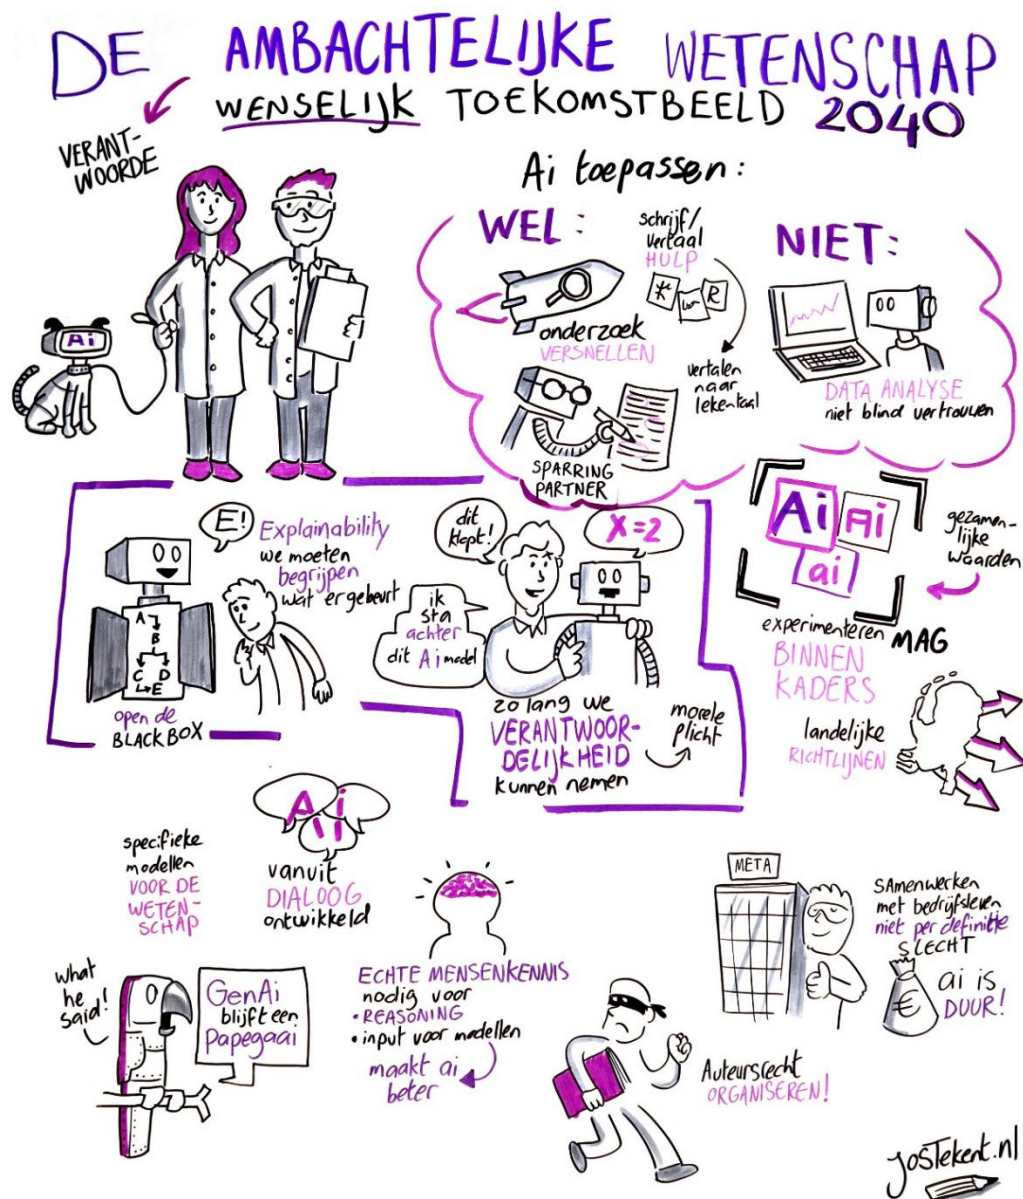 DE AMBACHTELIJKE WETENSCHAP
WENSELIJK TOEKOMSTBEELD 2040
VERANT-
WOORDE
Ai
Ai toepassen:
WEL:
onderzoek
VERSNELLEN
schrijf/
vertaal
HULP
vertalen
naar
lekentaal
SPARRING
PARTNER
NIET:
DATA ANALYSE
niet blind vertrouwen
E!
Explainability
we moeten
begrijpen
wat er gebeurt
A
B
C D
E
open de
BLACKBOX
dit
klopt!
X=2
ik
sta
achter
dit Ai model
zo lang we
VERANTWOOR-
DELIJKHEID
kunnen nemen
morele
plicht
Ai Ai
ai
gezamen-
lijke
waarden
experimenteren MAG
BINNEN
KADERS
landelijke
RICHTLIJNEN
specifieke
modellen
VOOR DE
WETEN-
SCHAP
Ai
vanuit
DIALOOG
ontwikkeld
what
he
said!
GenAi
blijft een
Papegaai
ECHTE MENSENKENNIS
nodig voor
• REASONING
• input voor modellen
maakt ai
beter
Auteursrecht
ORGANISEREN!
META
SAmenwerken
met bedrijfsleven
niet per definitie
SLECHT
€
ai is
DUUR!
josTekent.nl